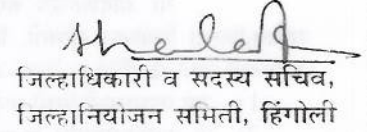 जिल्हाधिकारी व सदस्य सचिव,
जिल्हानियोजन समिती, हिंगोली